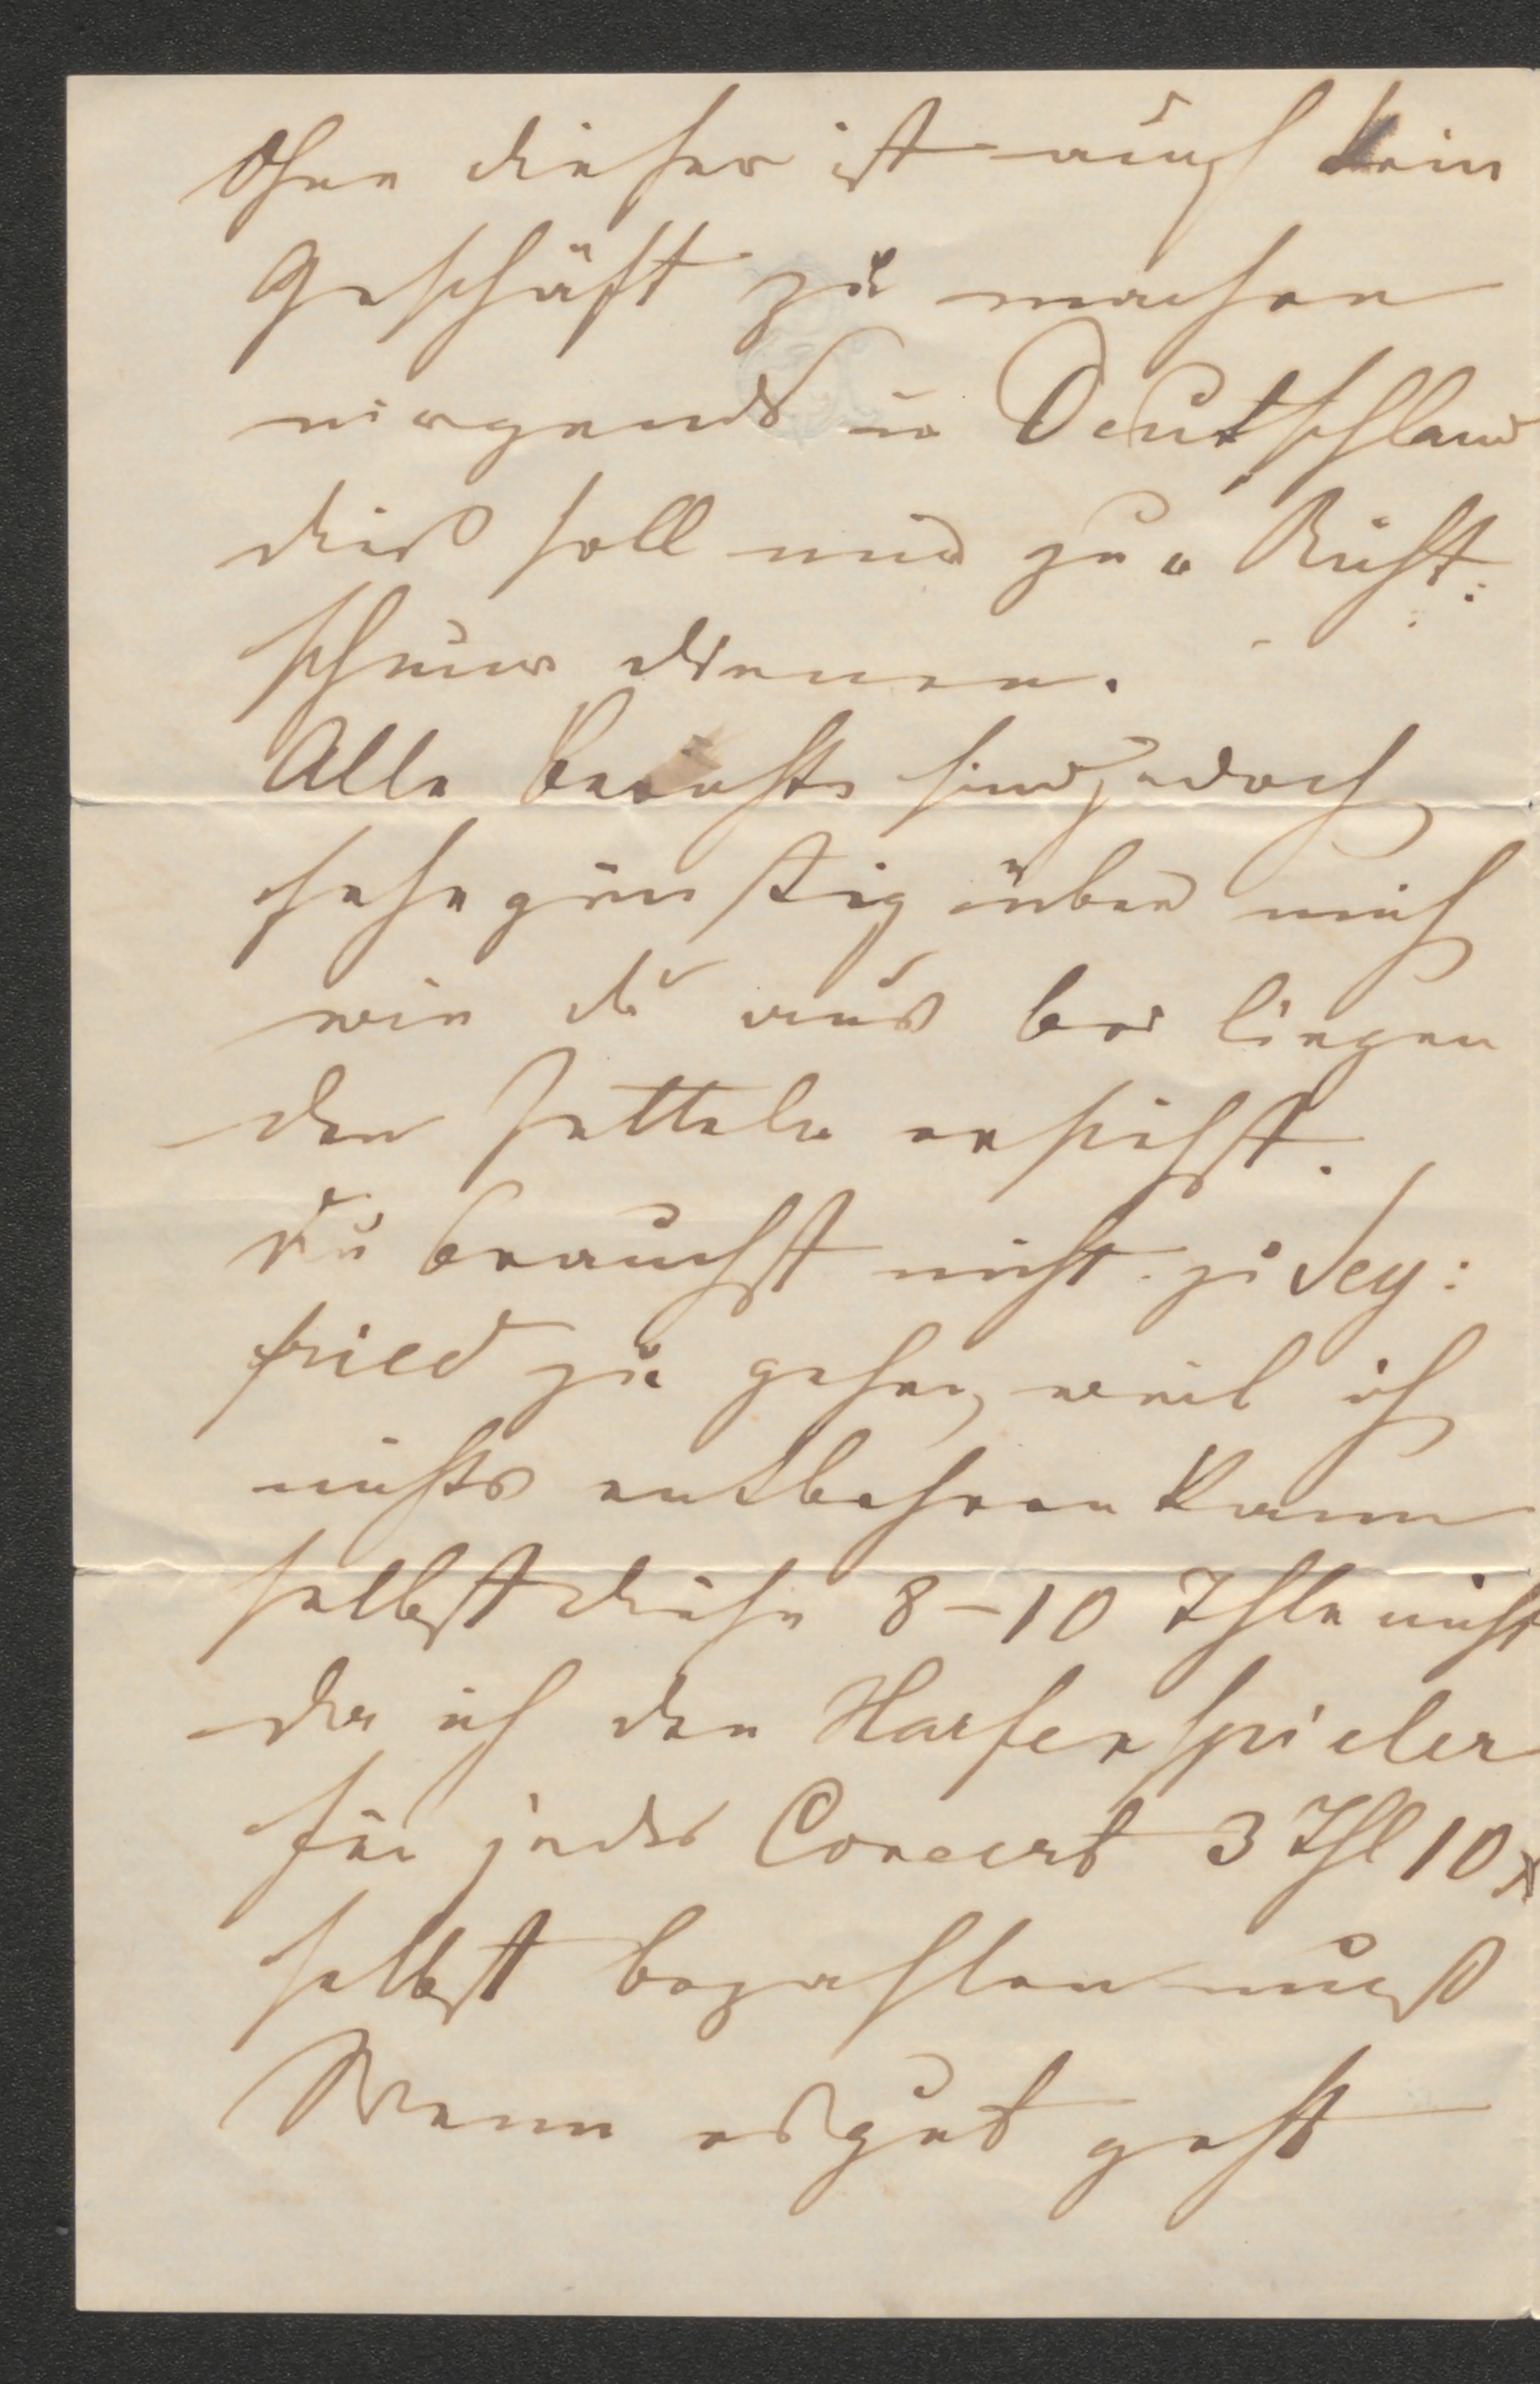 Ohne dieser ist auch kein
Geschäft zu machen
nirgends in Deutschland
dieß soll mir zur Richt:
schnur dienen.
Alle Berichte sind jedoch
sehr günstig über mich
wie du aus bei liegen
den Zetteln ersichst.
Du brauchst nicht zu Sey:
fried zu gehen, weil ich
nichts entbehren kann
selbst diese 8–10 Thlr nicht
da ich den Harfenspieler
für jedes Concert 3 Thl 10
selbst bezahlen muß
Wenn es gut geht